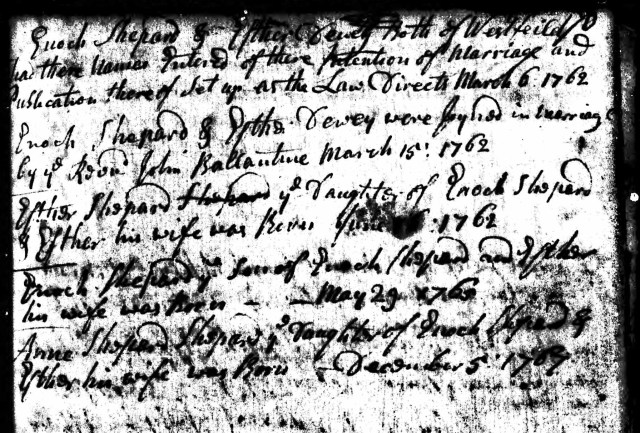 Enoch Shepard & Esther Dewey Both of Westfeild
had there Names Entered of there Intention of Marriage and
Publication thereof Set up as the Law Directs March 6 1762
Enoch Shepard & Esther Dewey were Joyned in marriage
by ye Revd John Ballantine March 15: 1762
Esther Shepard Shepard ye Daughter of Enoch Shepard
& Esther his wife was Born June 1762
Enoch Shepard ye Son of Enoch Shepard and Esther
his wife was Born May 29
Anne Shepard Shepard ye Daughter of Enoch Shepard &
Esther his wife was Born December 5: